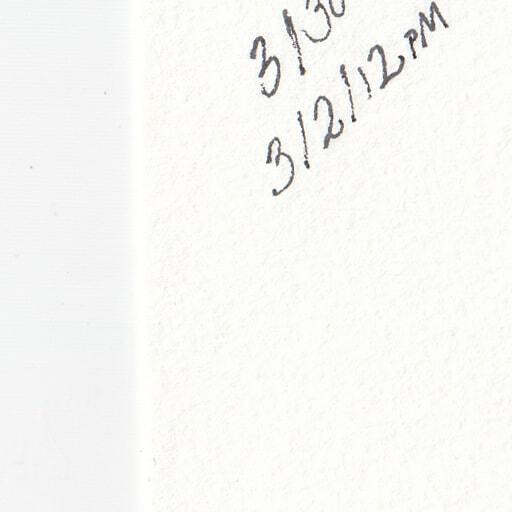 3/30
3/2/12 PM